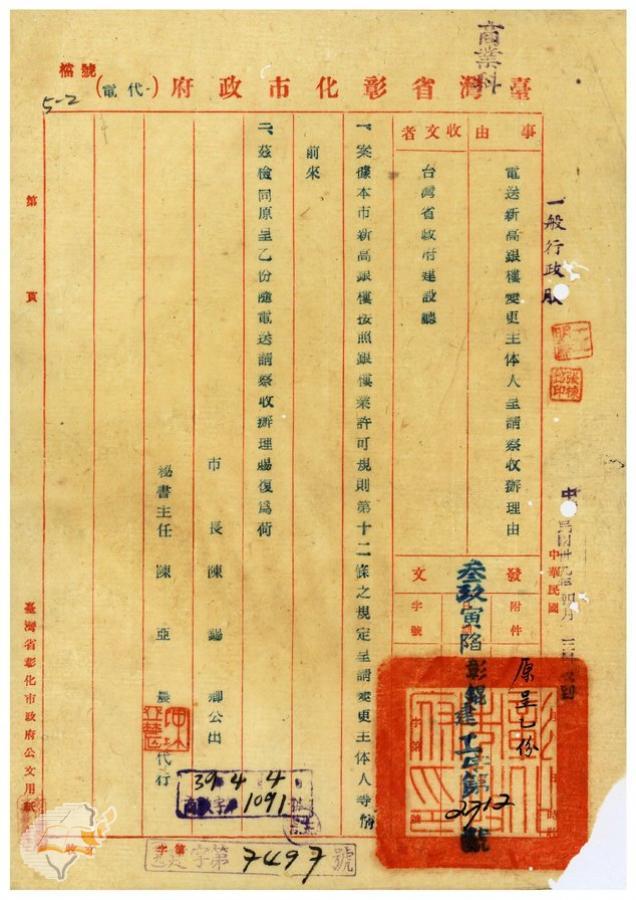 商業科
臺灣省彰化市政府(代電)
檔號
5-2
事由
電送新高銀樓變更主体人呈請察收辦理由
收文者
台灣省政府建設廳
一般行政股
中華民國
發文
附件
原呈乙份
字號
叁玖寅陷彰錕建工字第2712號
一、案據本市新高銀樓依照銀樓業許可規則第十二條之規定呈請變更主体人等情
前來
二、茲檢同原呈乙份隨電送請察收辦理賜復為荷
市長陳錫卿公出
秘書主任陳亞
代行
39.4.4
1091
字第7497號
第頁
臺灣省彰化市政府公文用紙